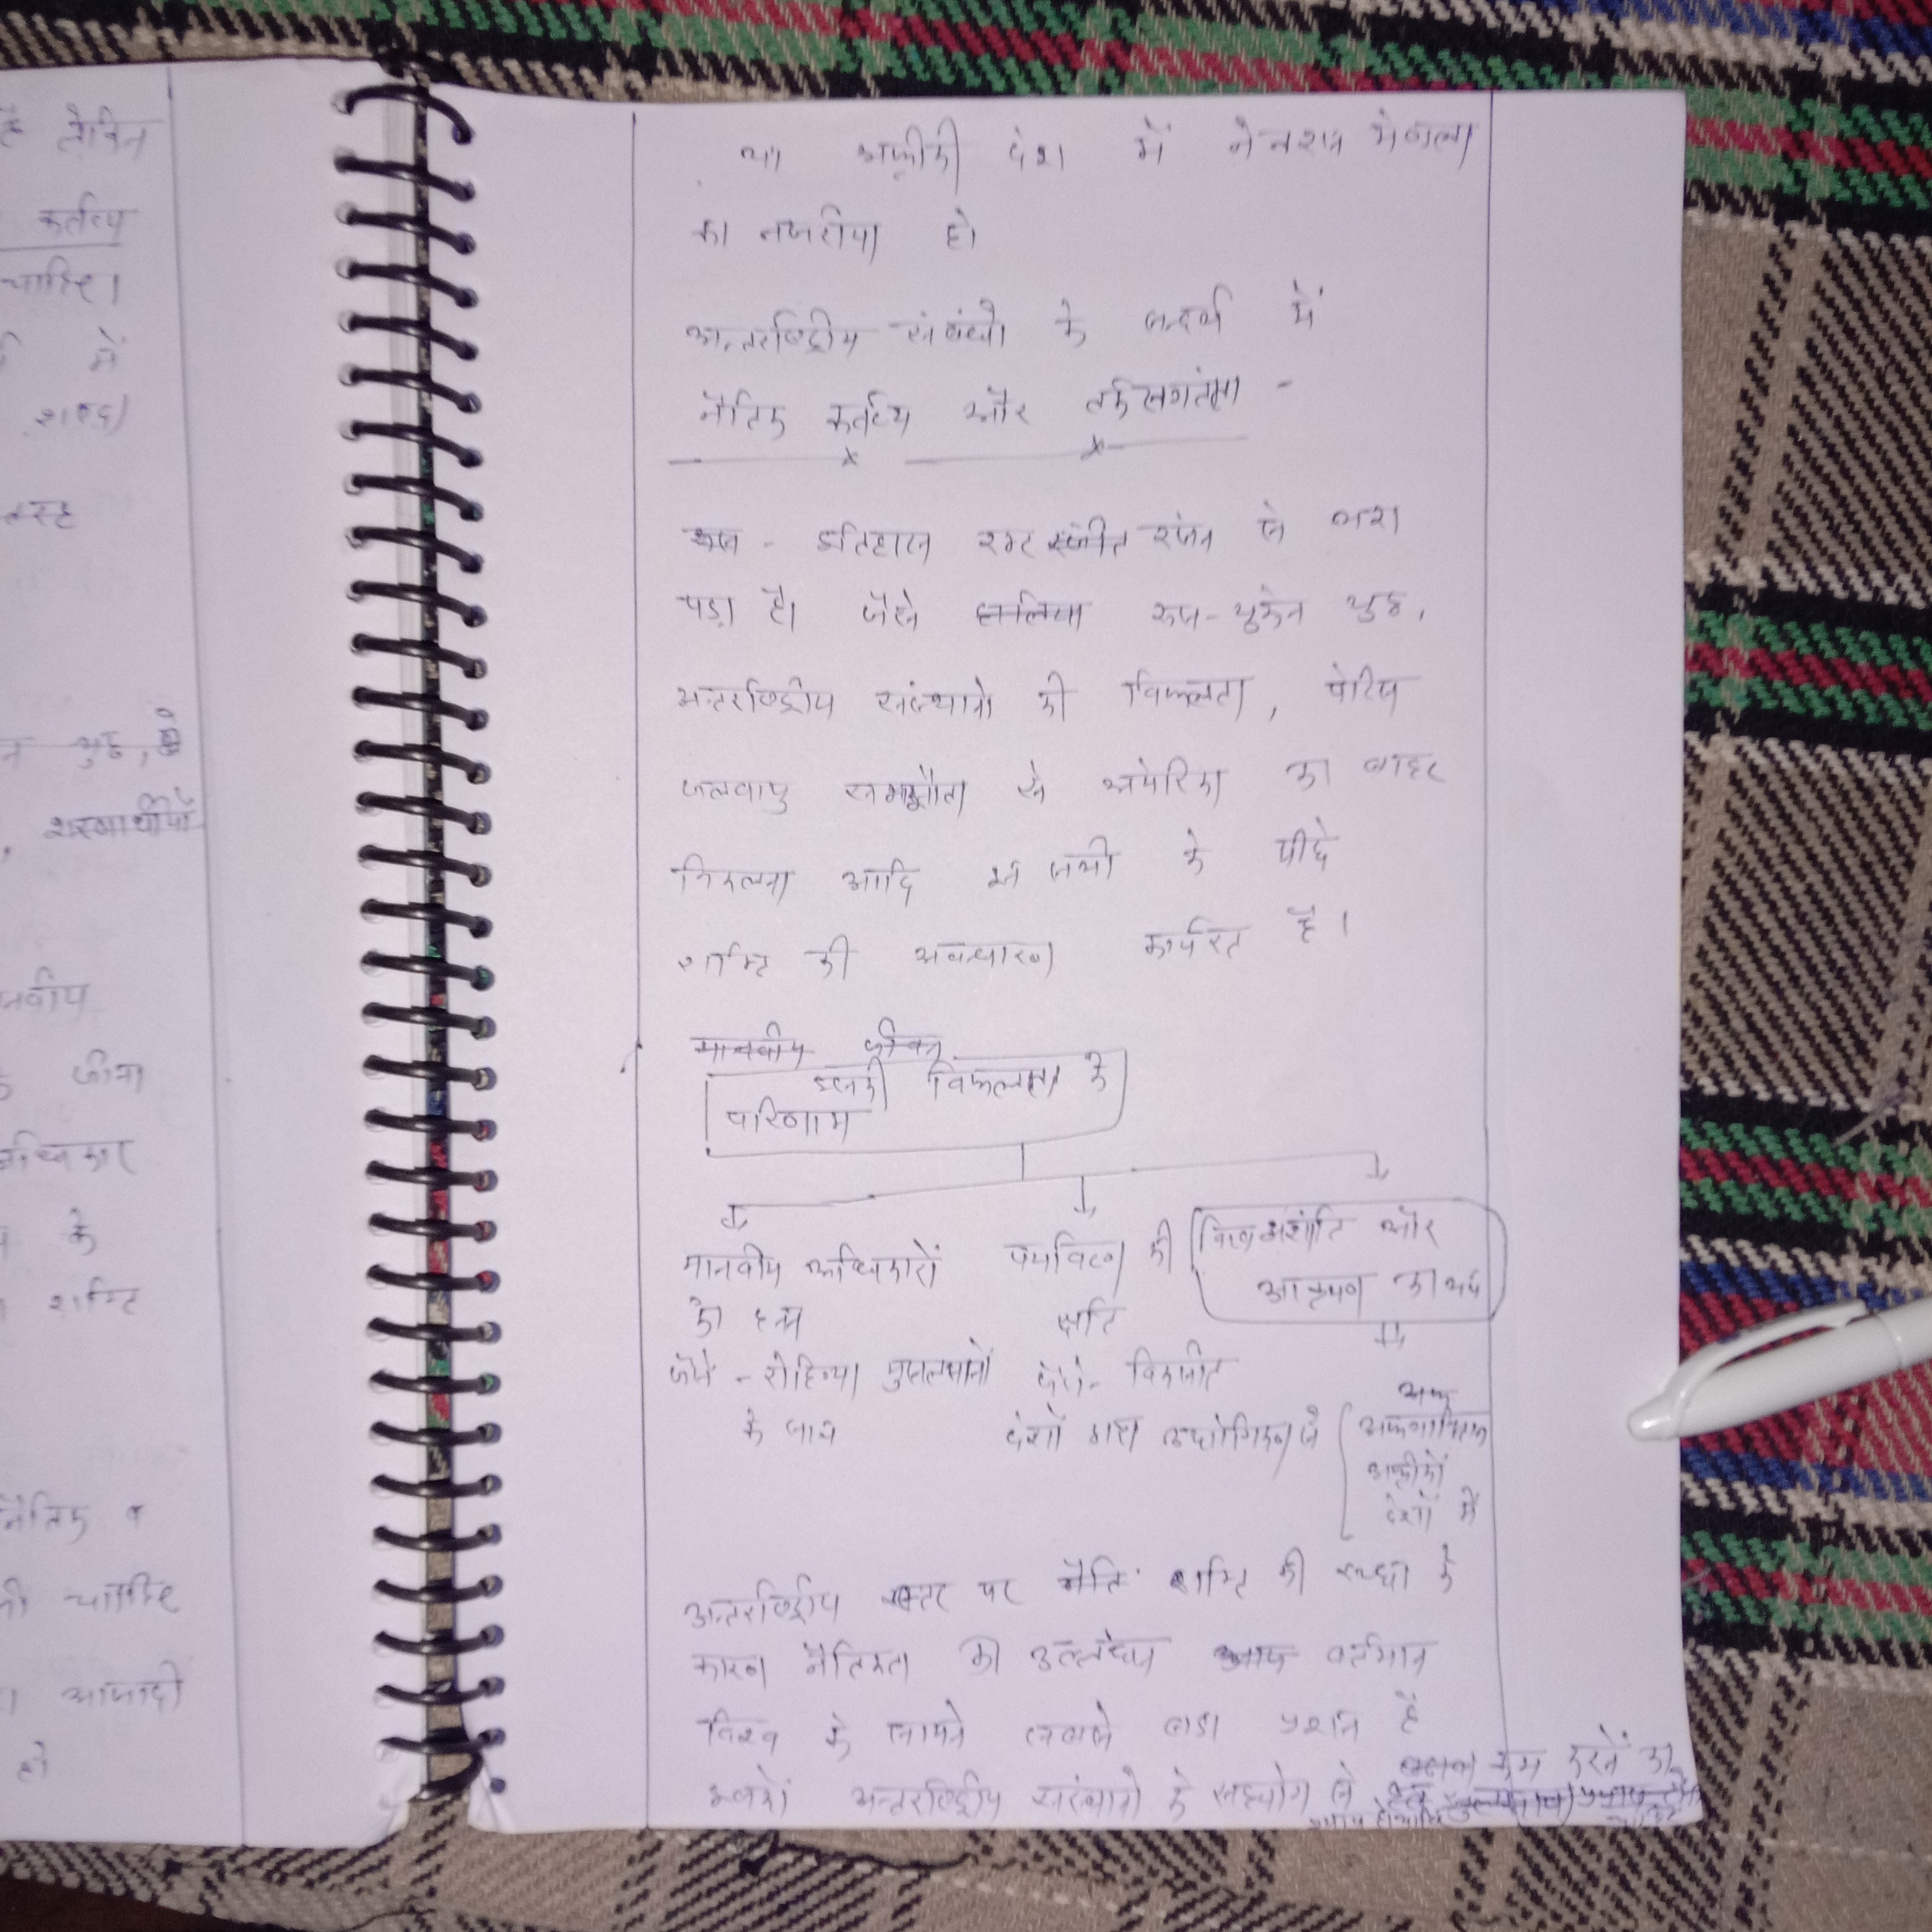 है लेकिन
कर्तव्य
चाहिए।
में
शब्द
युद्ध,
शरणार्थीयों
मानवीय
अधिकार
के
शक्ति
नैतिक व
की चाहिए
आजादी
हो
या अफ्रीकी देश में नेल्शन मंडेला
का नजरीया हो
अन्तर्राष्ट्रीय संबंधो के सन्दर्भ में
नैतिक कर्तव्य और तर्कसंगतता -
इतिहास से भरा
पड़ा है। जैसे हालिया रूस-यूक्रेन युद्ध,
अन्तर्राष्ट्रीय संस्थानो की विफलता, पेरिस
जलवायु समझौता से अमेरिका का बाहर
निकलना आदि सभी के पीछे
शक्ति की अवधारणा कार्यरत है।
मानवीय जीवन
इनकी विफलता के
परिणाम
मानवीय अधिकारों
का हनन
जैसे - रोहिंग्या मुसलमानों
के साथ
पर्यावरण की
क्षति
जैसे - विकसीत
देशों द्वारा औद्योगिकरण से
विश्व अशांति और
आक्रमण का भय
अफगानिस्तान
अफ्रीकी
देशों में
अन्तर्राष्ट्रीय स्तर पर शक्ति की स्पर्धा के
कारण नैतिकता का उल्लंघन वर्तमान
विश्व के सामने सबसे बडा प्रश्न है
अन्तर्राष्ट्रीय संस्थानो के सहयोग से कम करने का